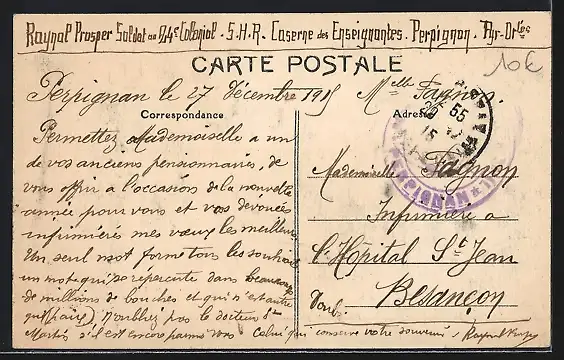 Raynal Prosper Soldat au 24e Colonial - S.H.R - Caserne des Enseignantes - Perpignan - Pyr-Orles
CARTE POSTALE
10€
Perpignan le 27 Décembre 1915
Melle Fagnon
Correspondance
Adresse
Permettez Mademoiselle a un
de vos anciens pensionnaires, de
vous offrir a l'occasion de la nouvelle
année pour vous et vos dévouées
infirmières mes vœux les meilleurs
Un seul mot forme tous les souhaits
un mot qui se répercute dans beaucoup
de millions de bouches et qui n'est autre
que (paix) N'oubliez pas le docteur St
Martin s'il est encore parmi vous
Celui qui conserve votre souvenir, Raynal Prosper
Mademoiselle Fagnon
Infirmière a
l'Hôpital St Jean
Besançon
Doubs
PERPIGNAN